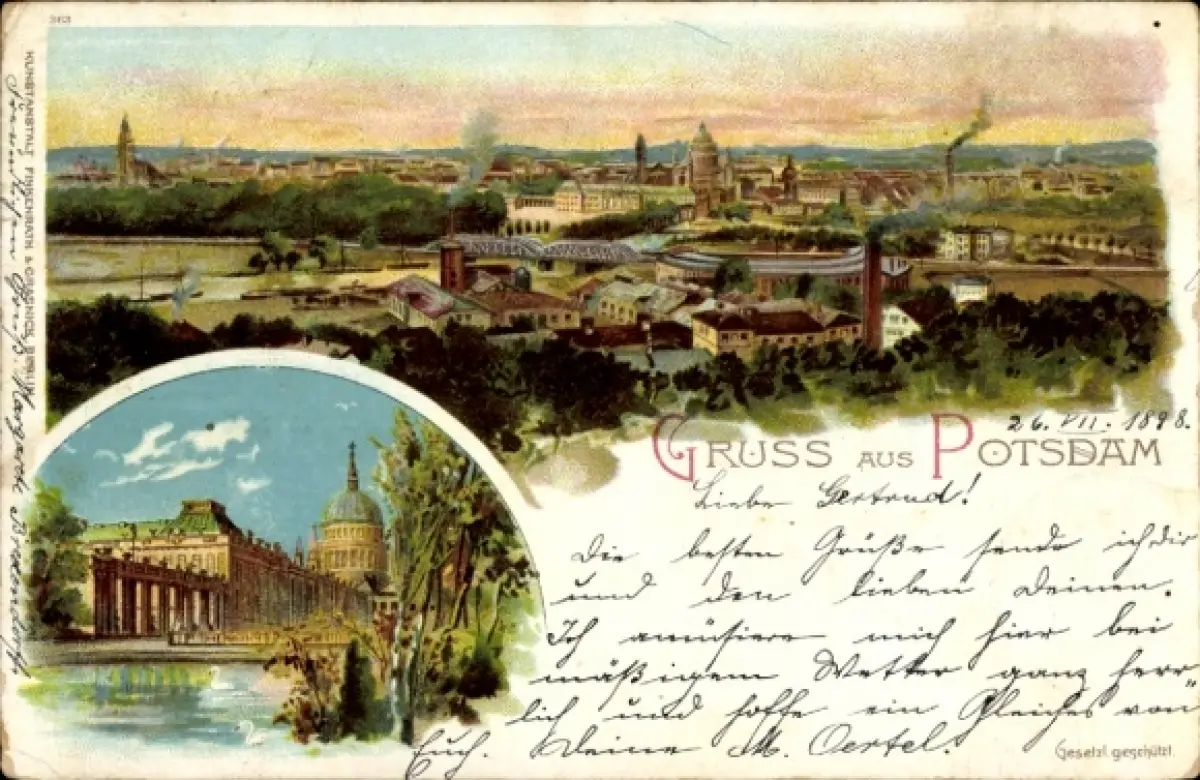 363
KUNSTANSTALT FINKENRATH & GRASNICK, BERLIN
26. VII. 1898.
GRUSS AUS POTSDAM
Liebe Gertrud!
Die besten Grüße sende ich dir
und den lieben Deinen.
Ich amüsiere mich hier bei
mäßigem Wetter ganz herr„
lich und hoffe ein Gleiches von
Euch. Deine M. Oertel.
Gesetzl. geschützt.
Gruß. Margarete